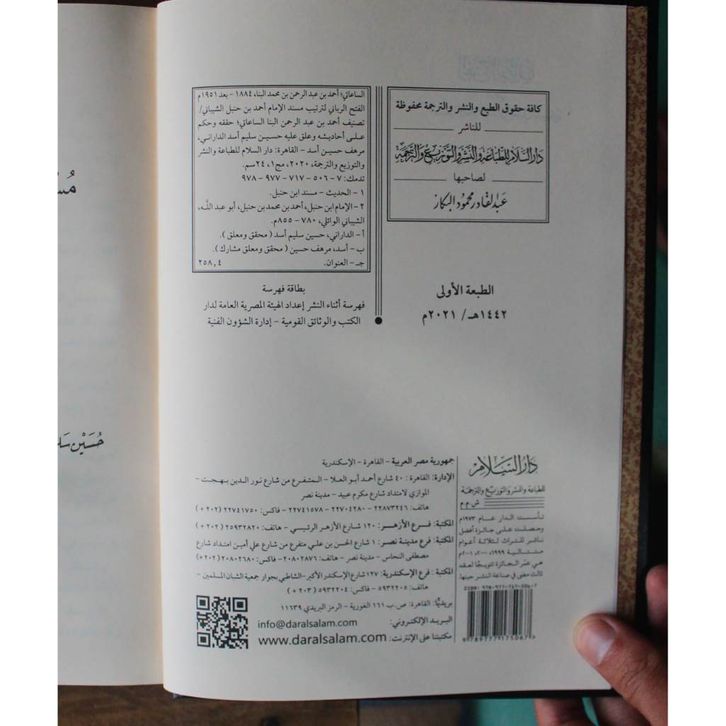 كافة حقوق الطبع والنشر والترجمة محفوظة
للناشر
دار السلام للطباعة والنشر والتوزيع والترجمة
لصاحبها
عبدالقادر محمود البكار
الطبعة الأولى
١٤٤٢هـ/ ٢٠٢١م
الساعاتي؛ أحمد بن عبد الرحمن بن محمد البنا، ١٨٨٤ - بعد ١٩٥١م
الفتح الرباني لترتيب مسند الإمام أحمد بن حنبل الشيباني/
تصنيف أحمد بن عبد الرحمن البنا الساعاتي؛ حققه وحكم
على أحاديثه وعلق عليه حسين سليم أسد الداراني،
مرهف حسين أسد - القاهرة: دار السلام للطباعة والنشر
والتوزيع والترجمة، ٢٠٢٠، مج١، ٢٤سم.
تدمك: ٧ - ٥٠٦ - ٧١٧ - ٩٧٧ - ٩٧٨
١ - الحديث - مسند ابن حنبل.
٢- الإمام ابن حنبل، أحمد بن محمد بن حنبل، أبو عبد الله،
الشيباني الوائلي، ٧٨٠ - ٨٥٥م.
أ - الداراني، حسين سليم أسد (محقق ومعلق).
ب - أسد، مرهف حسين (محقق ومعلق مشارك).
جـ - العنوان. ٢٥٨,٤
بطاقة فهرسة
فهرسة أثناء النشر إعداد الهيئة المصرية العامة لدار
الكتب والوثائق القومية - إدارة الشؤون الفنية
حسين سليـ
دار السلام
للطباعة والنشر والتوزيع والترجمة
ش.م.م
تأسست الدار عام ١٩٧٣م
وحصلت على جائزة أفضل
ناشر للتراث لثلاثة أعوام
متتالية ١٩٩٩م، ٢٠٠٠م، ٢٠٠١م
هي عشر الجائزة تتويجًا لعقد
ثالث مضى في صناعة النشر
ISBN: 978-977-717-506-7
9789777175067
جمهورية مصر العربية - القاهرة - الإسكندرية
الإدارة: القاهرة: ٤٠ شارع أحمد أبو العلا - المتفرع من شارع نور الدين بهجت -
الموازي لامتداد شارع مكرم عبيد - مدينة نصر
هاتف: ٢٢٨٧٣٢٤٦ - ٢٢٧٠٤٢٨٠ - ٢٢٧٤١٥٧٨ - فاكس: ٢٢٧٤١٧٥٠ (٢٠٢+)
المكتبة: فرع الأزهر: ١٢٠ شارع الأزهر الرئيسي - هاتف: ٢٥٩٣٢٨٢٠ (٢٠٢+)
المكتبة: فرع مدينة نصر: ١ شارع الحسن بن علي متفرع من شارع علي أمين امتداد شارع
مصطفى النحاس - مدينة نصر - هاتف: ٢٠٨٠٢٨٧٦ - فاكس: ٢٠٨٠٢٦٨٠ (٢٠٢+)
المكتبة: فرع الإسكندرية: ١٢٧ شارع الإسكندر الأكبر - الشاطبي بجوار جمعية الشبان المسلمين -
هاتف: ٥٩٣٢٢٠٥ - فاكس: ٥٩٣٢٢٠٤ (٢٠٣+)
بريديًّا: القاهرة: ص.ب ١٦١ الغورية - الرمز البريدي ١١٦٣٩
البريد الإلكتروني: info@daralsalam.com
مكتبتنا على الإنترنت: www.daralsalam.com